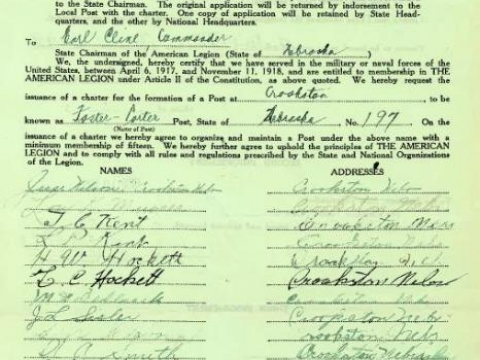 to the State Chairman. The original application will be returned by indorsement to the
Local Post with the charter. One copy of application will be retained by State Head-
quarters, and the other by National Headquarters.
To Earl Cline Commander
State Chairman of the American Legion (State of Nebraska)
We, the undersigned, hereby certify that we have served in the military or naval forces of the
United States, between April 6, 1917, and November 11, 1918, and are entitled to membership in THE
AMERICAN LEGION under Article II of the Constitution, as above quoted. We hereby request the
issuance of a charter for the formation of a Post at Crookston, to be
known as Foster-Porter Post, State of Nebraska, No. 197 On the
(Name of Post)
issuance of a charter we hereby agree to organize and maintain a Post under the above name with a
minimum membership of fifteen. We hereby further agree to uphold the principles of THE AMERICAN
LEGION and to comply with all rules and regulations prescribed by the State and National Organizations
of the Legion.
NAMES ADDRESSES
Crookston Crookston Nebr
T. C. Kent Crookston
Kent Crookston
H W Hockett
T. C Hockett Crookston
Crookston
J L Crookston Nebr
Crookston Nebr
Smith Crookston